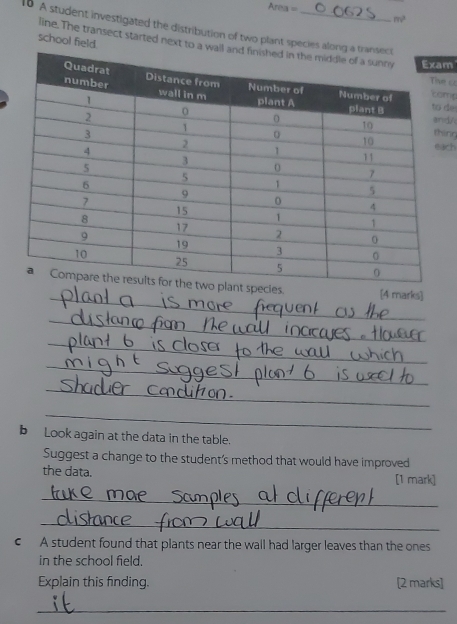 Area = 0.0625 m²
10 A student investigated the distribution of two plant species along a transect
line. The transect started next to a wall and finished in the middle of a sunny
school field.
Exam
Quadrat number Distance from wall in m Number of plant A Number of plant B
1 0 0 10
2 1 0 10
3 2 1 11
4 3 0 7
5 5 1 5
6 9 0 4
7 15 1 1
8 17 2 0
9 19 3 0
10 25 5 0
The
to
each
a Compare the results for the two plant species.
[4 marks]
plant a is more frequent as the
distance from the wall increases. However
plant b is closer to the wall which
might suggest plant b is used to
shadier condition.
b Look again at the data in the table.
Suggest a change to the student's method that would have improved
the data.
[1 mark]
take more samples at different
distance from wall
c A student found that plants near the wall had larger leaves than the ones
in the school field.
Explain this finding.
[2 marks]
it